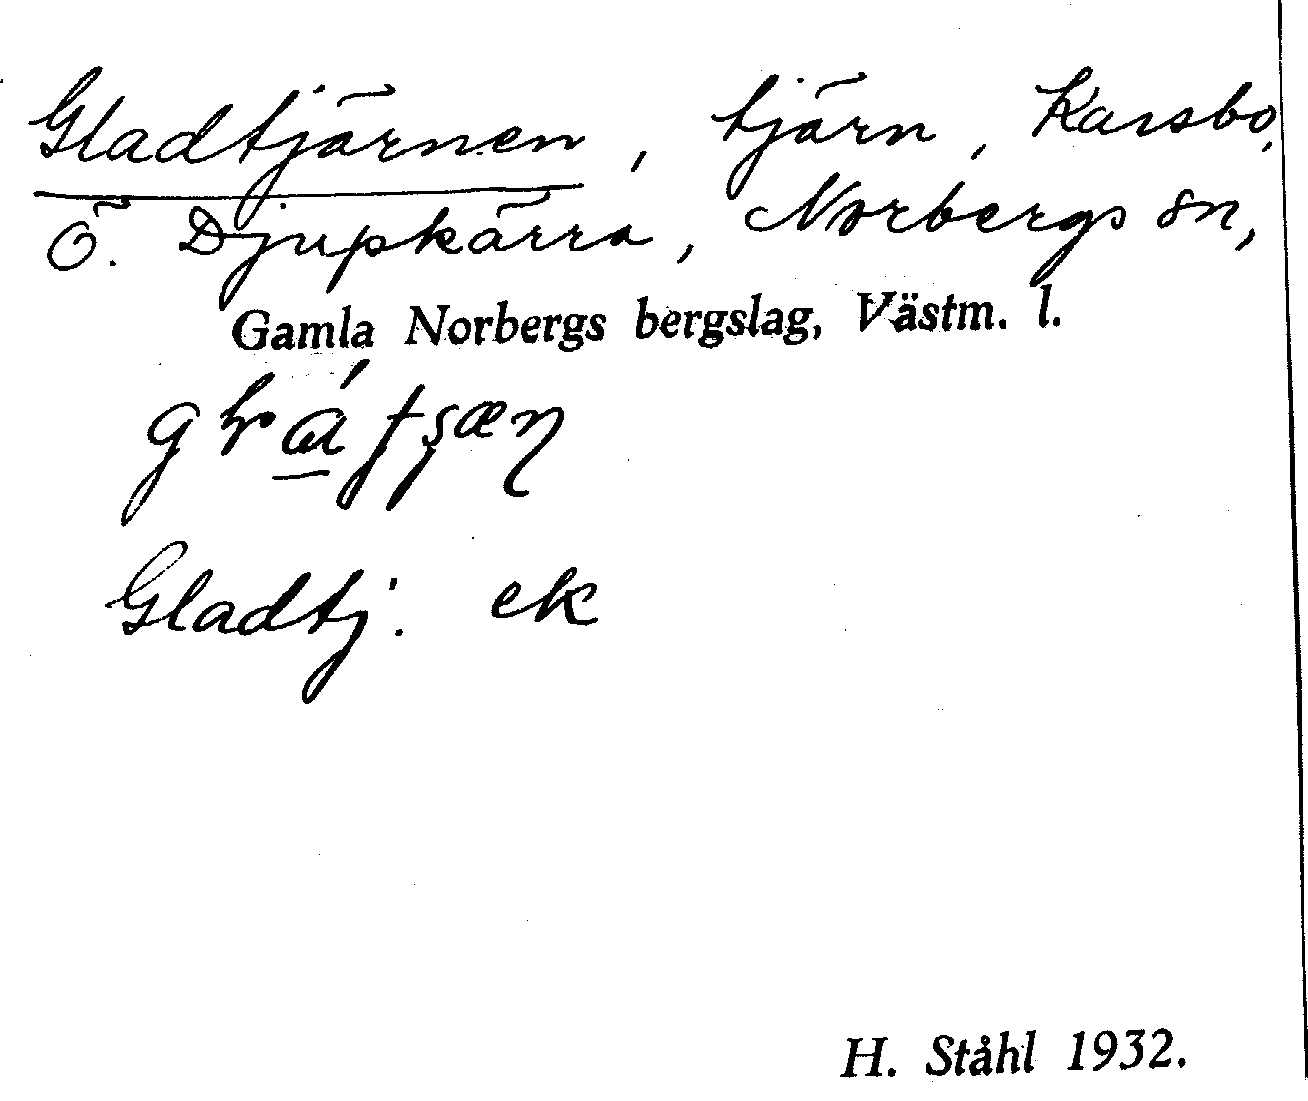 Gladtjärnen, tjärn, Karsbo,
Ö. Djupkärra, Norbergs sn,
Gamla Norbergs bergslag, Västm. l.
Gladtj. ek
H. Ståhl 1932.